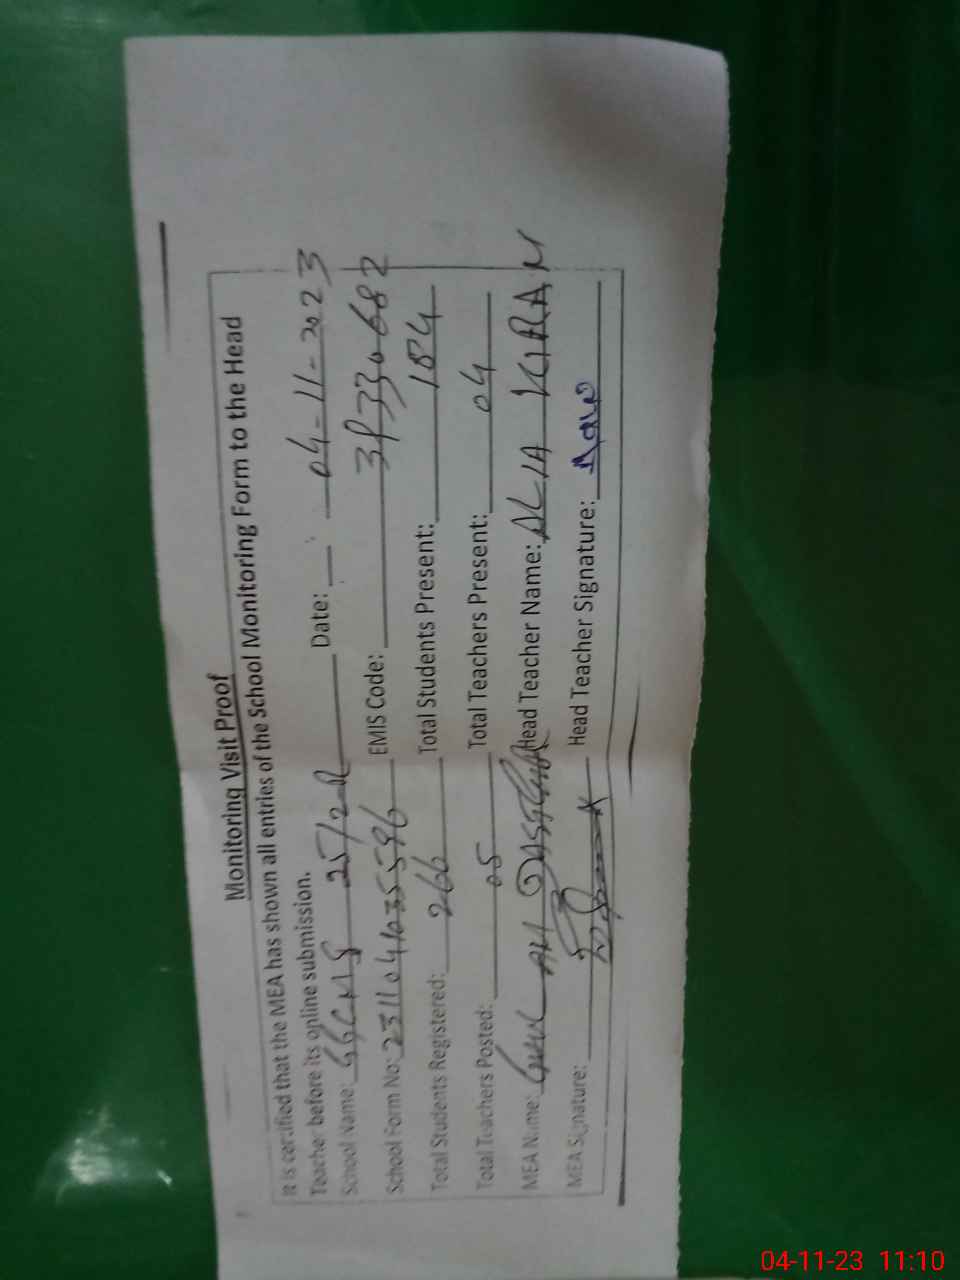 Monitoring Visit Proof
It is certified that the MEA has shown all entries of the School Monitoring Form to the Head
Teacher before its online submission.
School Name: GGCMS 25/2-R Date: 04-11-2023
School Form No: EMIS Code:
Total Students Registered: 266 Total Students Present: 184
Total Teachers Posted: 05 Total Teachers Present: 04
MEA Name: Head Teacher Name: ALIA KIRAN
MEA Signature: Head Teacher Signature:
04-11-23 11:10